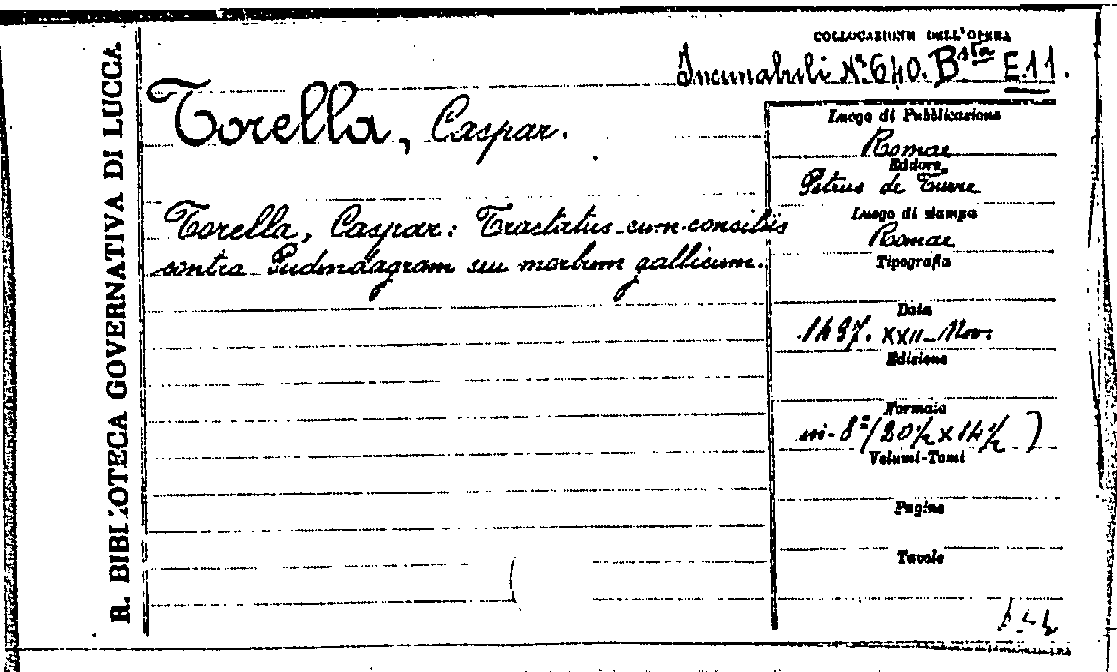 R. BIBLIOTECA GOVERNATIVA DI LUCCA
COLLOCAZIONE DELL'OPERA
Incunabili N.º 640. Bsta E.11.
Torella, Caspar.
Torella, Caspar: Tractatus cum consiliis
contra Pudendagram seu morbum gallicum.
Luogo di Pubblicazione
Romae
Editore
Petrus de Turre
Luogo di stampa
Romae
Tipografia
Data
1497. XXII Nov.
Edizione
Formato
in-8º (20½ x 14½)
Volumi-Tomi
Pagine
Tavole